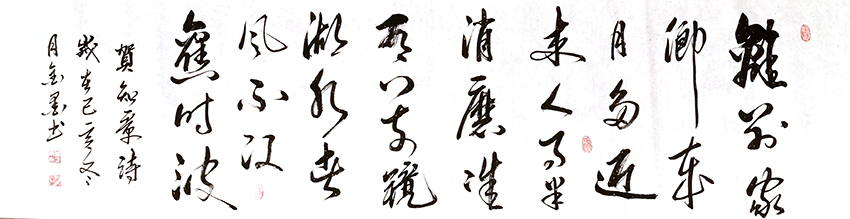 離別家
鄉歲
月多近
来人事半
消磨惟
有门前鏡
湖水春
風不改
舊時波
賀知章詩
歲在己亥冬
月金墨书